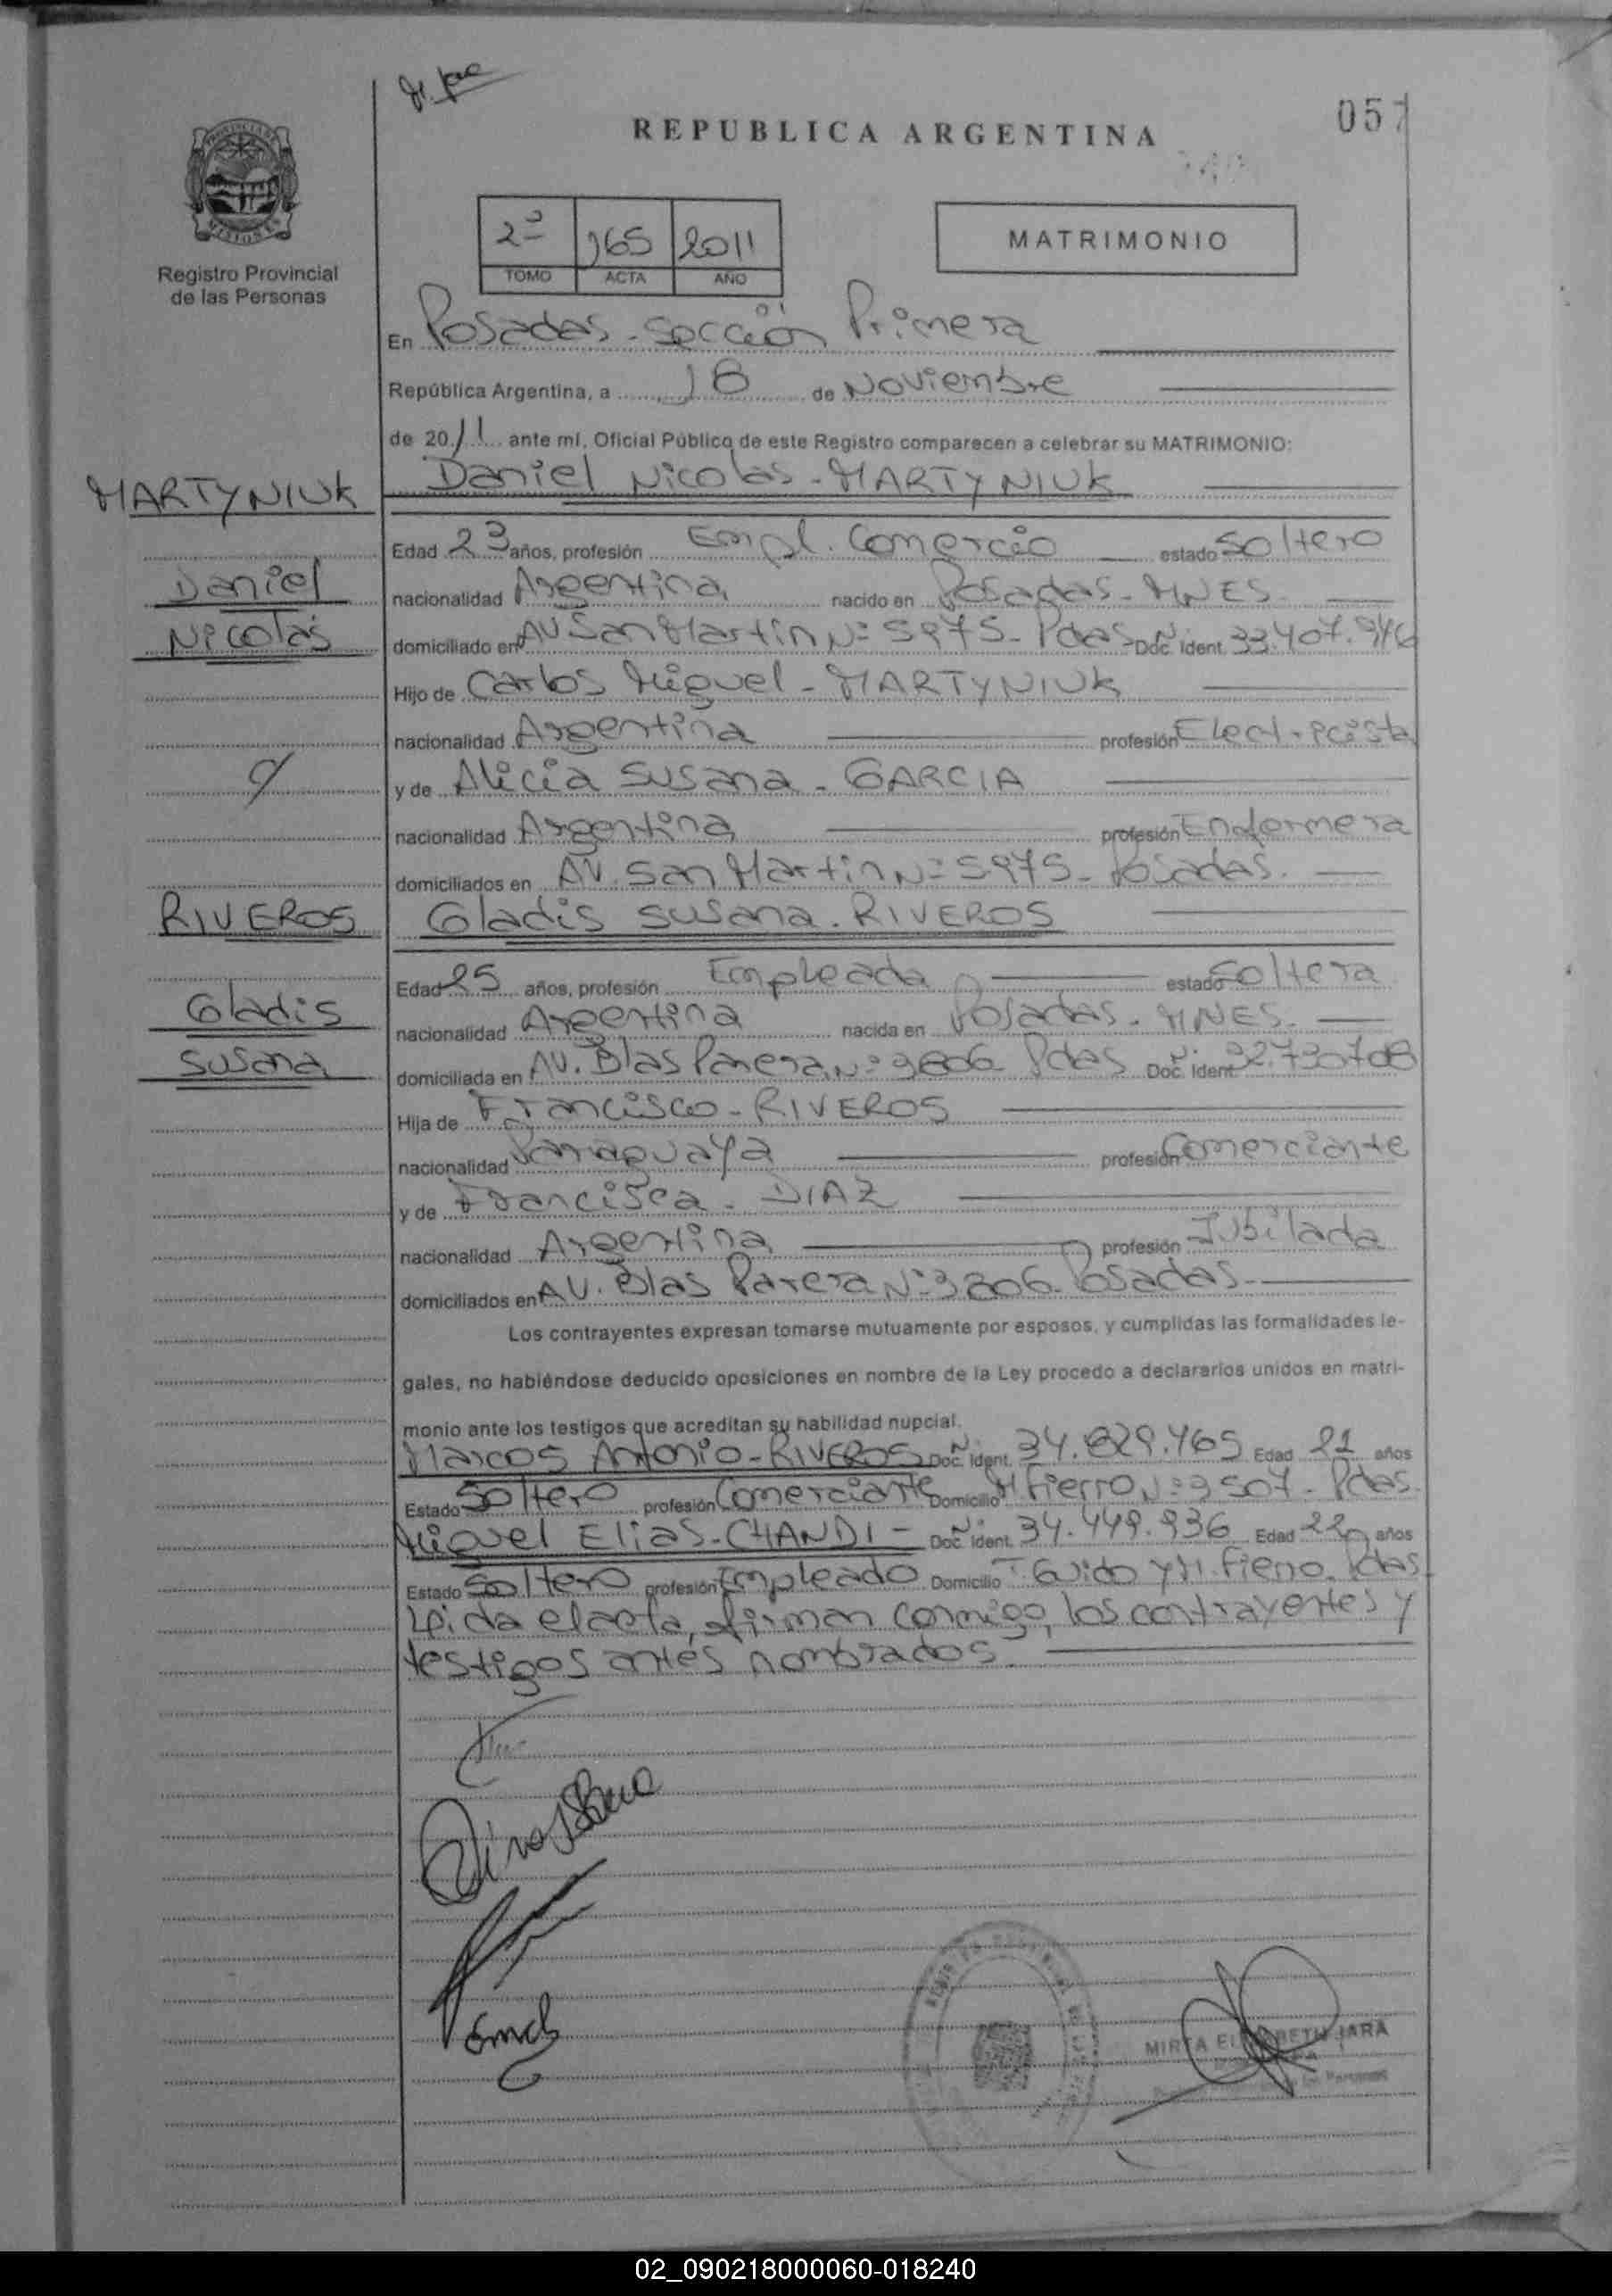 057
REPUBLICA ARGENTINA
PROVINCIA DE MISIONES
Registro Provincial
de las Personas
2º 165 2011
TOMO ACTA AÑO
MATRIMONIO
En Posadas - Sección Primera
República Argentina, a 18 de Noviembre
de 2011 ante mí, Oficial Público de este Registro comparecen a celebrar su MATRIMONIO:
MARTYNIUK Daniel Nicolas - MARTYNIUK
Edad 23 años, profesión Empl. Comercio estado Soltero
Daniel nacionalidad Argentina nacido en Posadas - MNES
Nicolás domiciliado en AV San Martin Nº 5975 - Pdas - Doc. Nº Ident. 33.407.946
Hijo de Carlos Miguel - MARTYNIUK
nacionalidad Argentina profesión Electricista
c/ y de Alicia Susana - GARCIA
nacionalidad Argentina profesión Enfermera
domiciliados en AV. San Martin Nº 5975 - Posadas.
RIVEROS Gladis Susana - RIVEROS
Edad 25 años, profesión Empleada estado Soltera
Gladis nacionalidad Argentina nacida en Posadas - MNES.
Susana domiciliada en AV. Blas Parera Nº 3806 Pdas Doc. Nº Ident. 32.730708
Hija de Francisco - RIVEROS
nacionalidad Paraguaya profesión Comerciante
y de Francisca - DIAZ
nacionalidad Argentina profesión Jubilada
domiciliados en AV. Blas Parera Nº 3806 Posadas
Los contrayentes expresan tomarse mutuamente por esposos, y cumplidas las formalidades le-
gales, no habiéndose deducido oposiciones en nombre de la Ley procedo a declararlos unidos en matri-
monio ante los testigos que acreditan su habilidad nupcial.
Marcos Antonio - RIVEROS Doc. Nº Ident. 34.829.465 Edad 21 años
Estado Soltero profesión Comerciante Domicilio M Fierro Nº 3507 - Pdas.
Miguel Elias - CHANDI - Doc. Nº Ident. 34.449.936 Edad 22 años
Estado Soltero profesión Empleado Domicilio T Guido y M. Fierro. Pdas
Leida el acta, firman conmigo, los contrayentes y
testigos antes nombrados
MIRTA ELIZABETH JARA
02_090218000060-018240